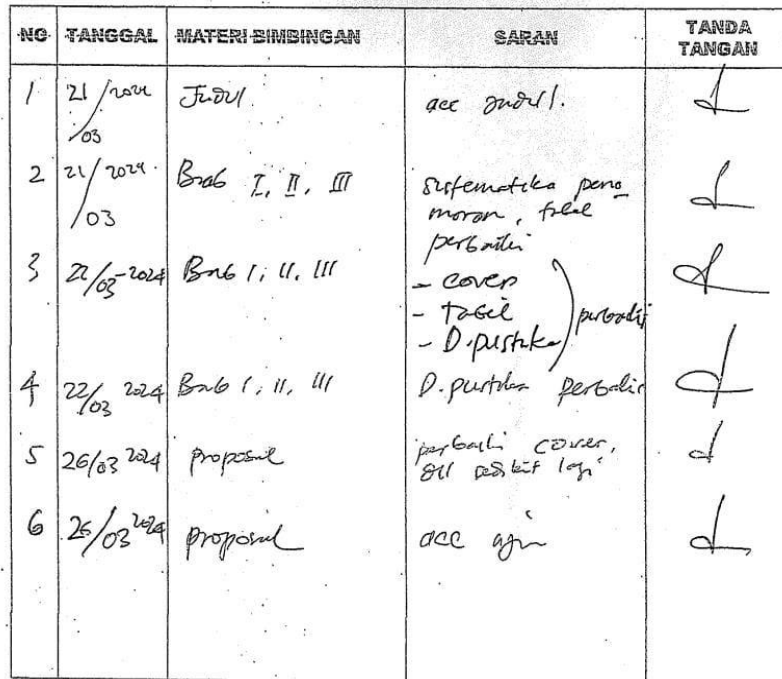 NO TANGGAL MATERI BIMBINGAN SARAN TANDA TANGAN
1 21/03 2024 Judul acc judul.
2 21/03 2024 Bab I, II, III sistematika peno
moran, tabel
perbaiki
3 22/03-2024 Bab I, II, III - cover
- tabel perbaiki
- D.pustaka
4 22/03 2024 Bab I, II, III D.pustaka perbaiki
5 26/03 2024 proposal perbaiki cover,
sedikit lagi
6 26/03 2024 proposal acc